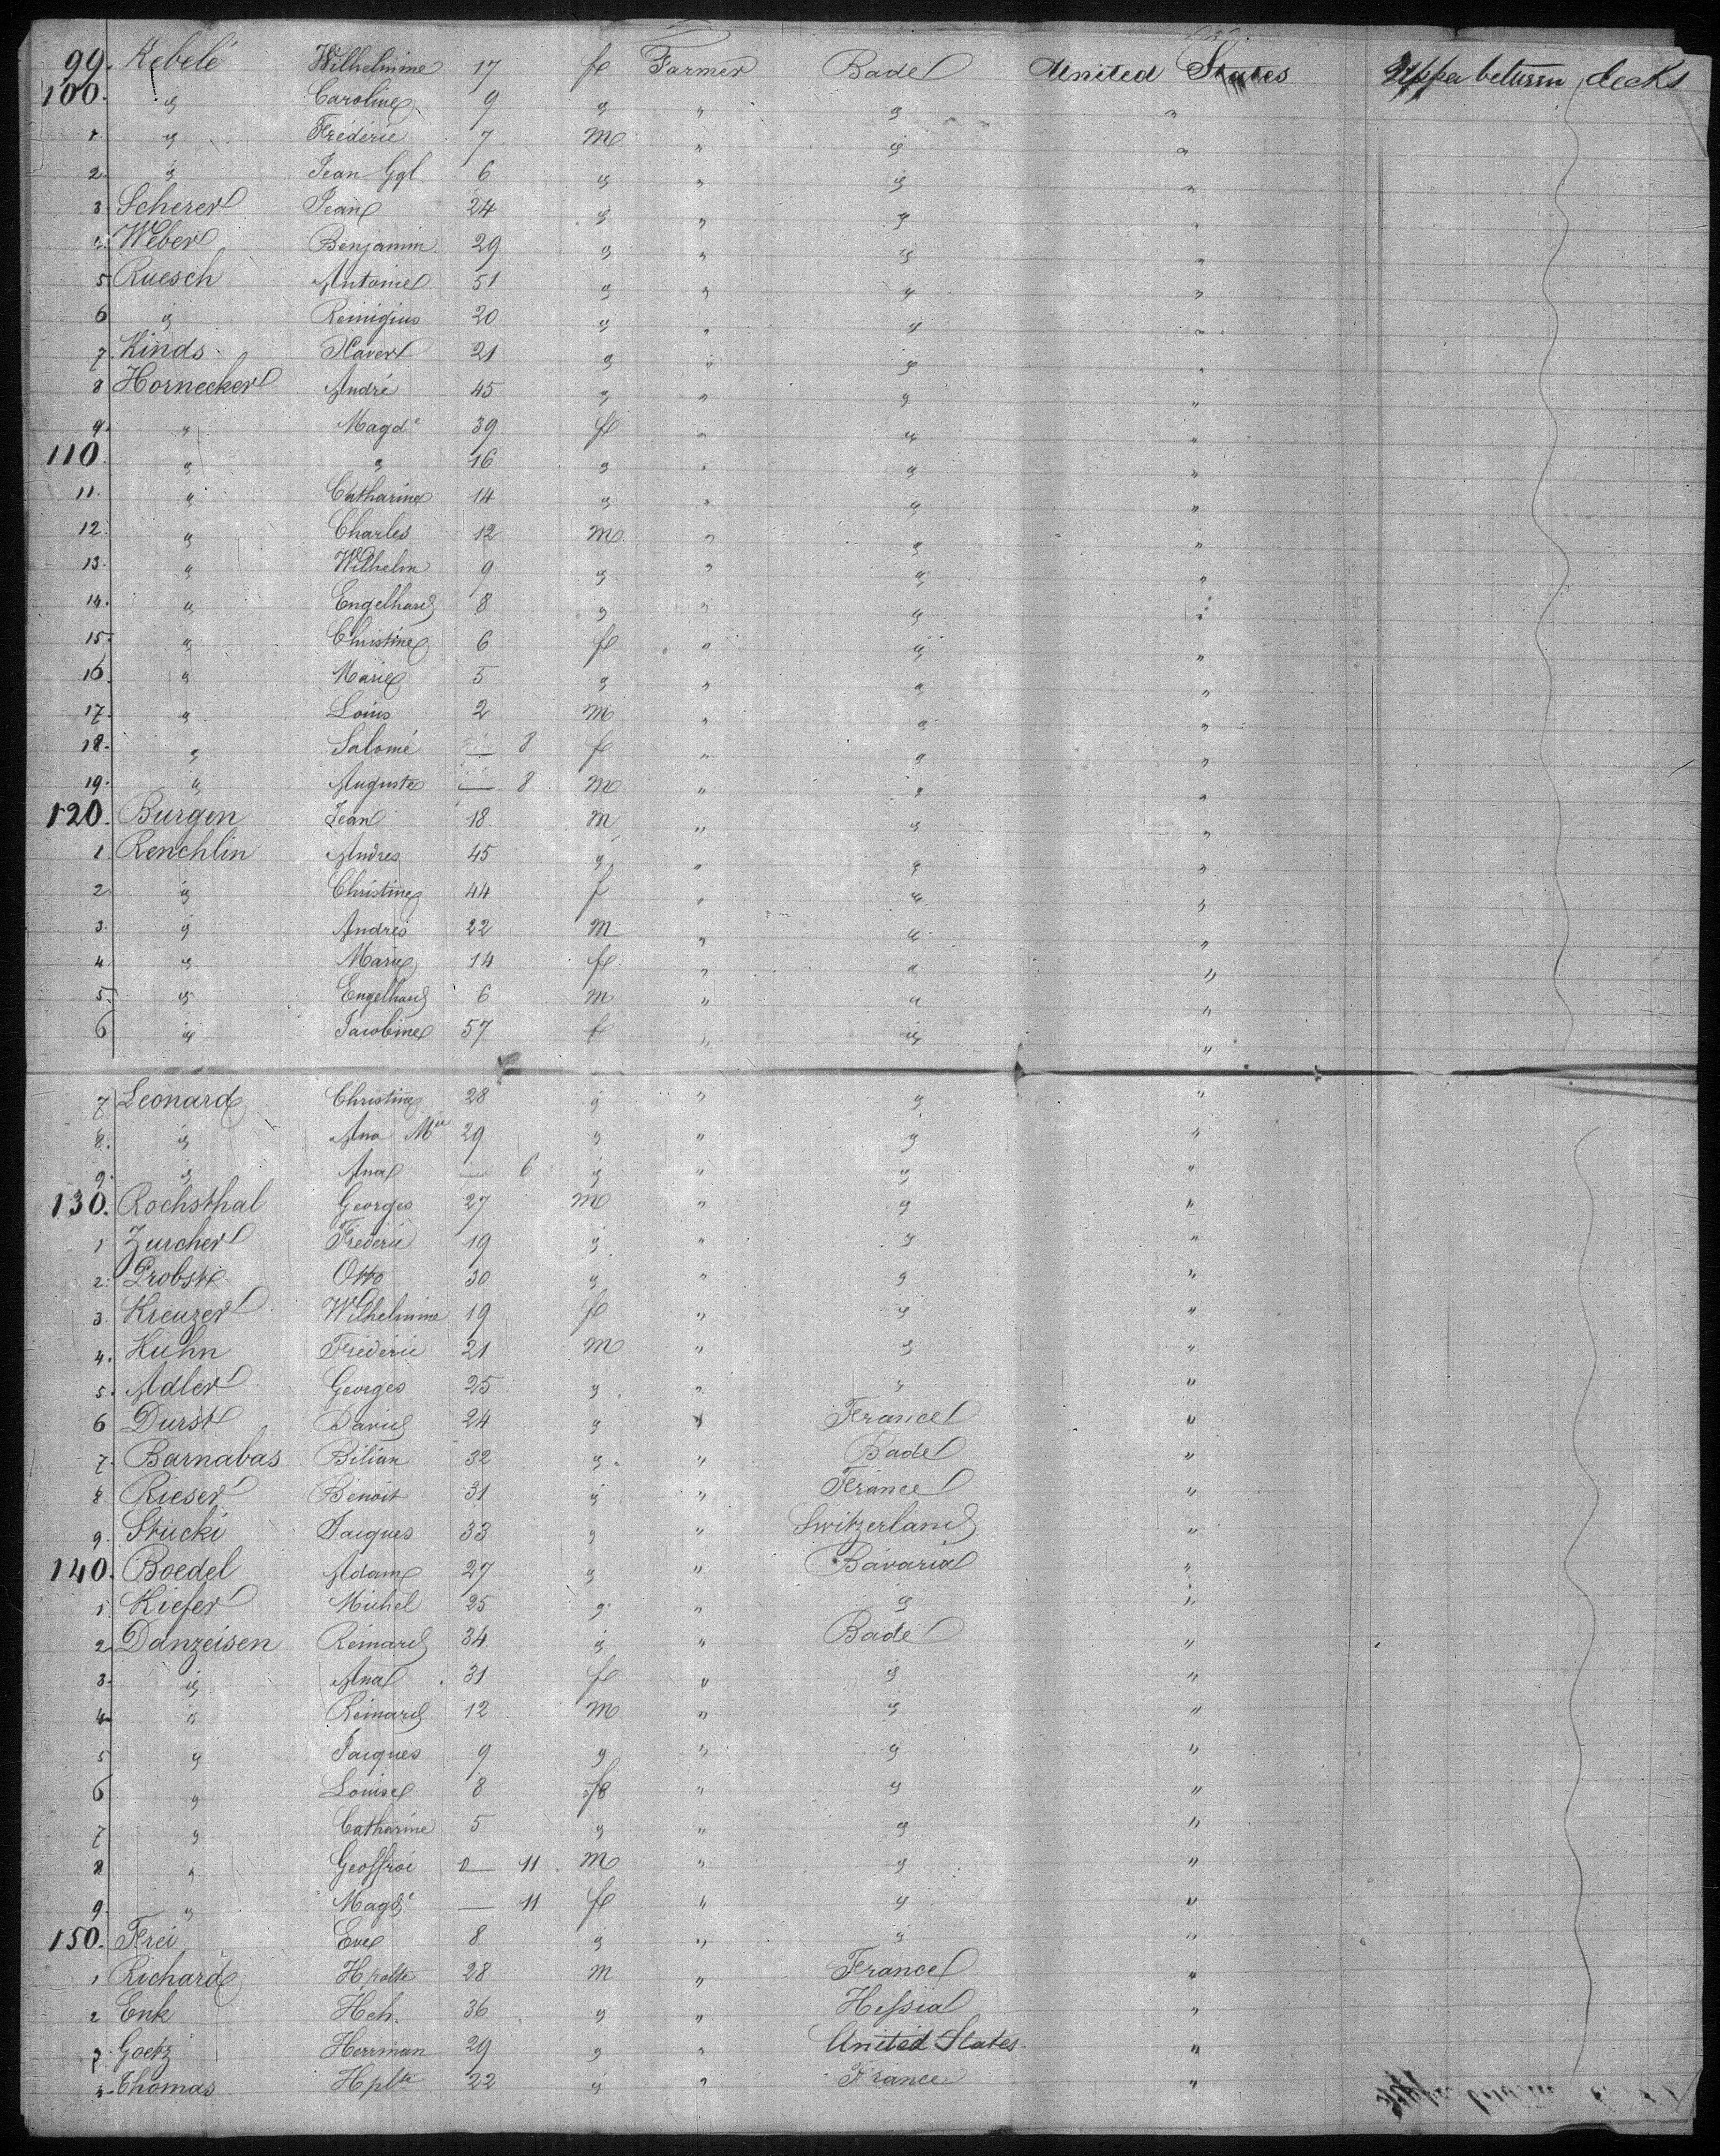 99. Kebelé Wilhelmine 17 fe Farmer Bade United States Upper between decks
100. " Caroline 9 " " " "
1. " Frédéric 7 m " " "
2. " Jean Ggl 6 " " " "
3. Scherer Jean 24 " " " "
4. Weber Benjamin 29 " " " "
5 Ruesch Antoine 51 " " " "
6 " Remigius 20 " " " "
7. Kinds Xaver 21 " " " "
8 Hornecker André 45 " " " "
9. " Magde 39 fe " " "
110 " " 16 " " " "
11. " Catharine 14 " " " "
12. " Charles 12 m " " "
13. " Wilhelm 9 " " " "
14. " Engelhard 8 " " " "
15. " Christine 6 fe " " "
16. " Marie 5 " " " "
17. " Louis 2 m " " "
18. " Salomé — 8 fe " " "
19. " Auguste — 8 m " " "
120. Burgen Jean 18 m " " "
1. Renchlin Andres 45 " " " "
2 " Christine 44 f " " "
3. " Andrés 22 m " " "
4 " Marie 14 fe " " "
5 " Engelhard 6 m " " "
6 " Jacobine 57 f " " "
7 Leonard Christine 28 " " " "
8. " Ana Mie 29 " " " "
9. " Ana — 6 " " " "
130. Rochsthal Georges 27 m " " "
1 Zurcher Fréderic 19 " " " "
2. Probst Otto 30 " " " "
3. Kreuzer Wilhelmine 19 fe " " "
4. Huhn Fréderic 21 m " " "
5. Adler Georges 25 " " " "
6 Durst David 24 " " France "
7. Barnabas Bilian 32 " " Bade "
8 Rieser Benoit 31 " " France "
9. Stucki Jacques 33 " " Switzerland "
140. Boedel Adam 27 " " Bavaria "
1 Kiefer Michel 25 " " " "
2 Danzeisen Reinard 34 " " Bade "
3. " Ana 31 fe " " "
4 " Reinard 12 m " " "
5 " Jacques 9 " " " "
6 " Louise 8 fe " " "
7 " Catharine 5 " " " "
8 " Geoffroi — 11 m " " "
9 " Magde — 11 fe " " "
150. Frei Eve 8 " " " "
1 Richard Hpolte 28 m " France "
2 Enk Hch. 36 " " Hessia "
3 Goetz Herrman 29 " " United States "
4 Thomas Hplte 22 " " France "